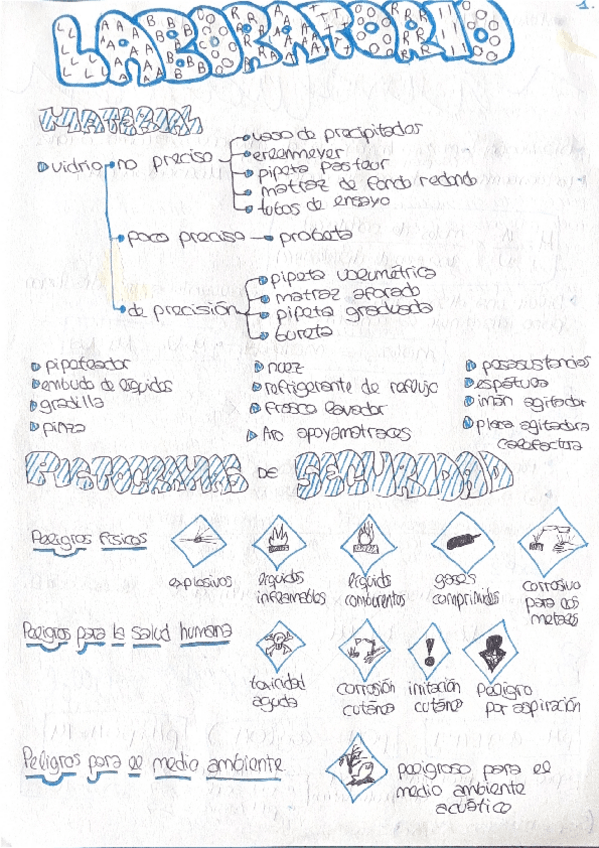 1.
LABORATORIO
MATERIAL
vidrio no preciso vaso de precipitados
erlenmeyer
pipeta pasteur
matraz de fondo redondo
tubos de ensayo
poco preciso probeta
de precisión pipeta volumétrica
matraz aforado
pipeta graduada
bureta
pipeteador
embudo de líquidos
gradilla
pinza
nuez
refrigerante de reflujo
frasco lavador
Aro apoyamatraces
pesasustancias
espátula
imán agitador
placa agitadora
calefactora
PICTOGRAMAS DE SEGURIDAD
Peligros físicos
explosivos
líquidos
inflamables
líquidos
comburentes
gases
comprimidos
corrosivo
para los
metales
Peligros para la salud humana
toxicidad
aguda
corrosión
cutánea
irritación
cutánea
peligro
por aspiración
Peligros para el medio ambiente
peligroso para el
medio ambiente
acuático